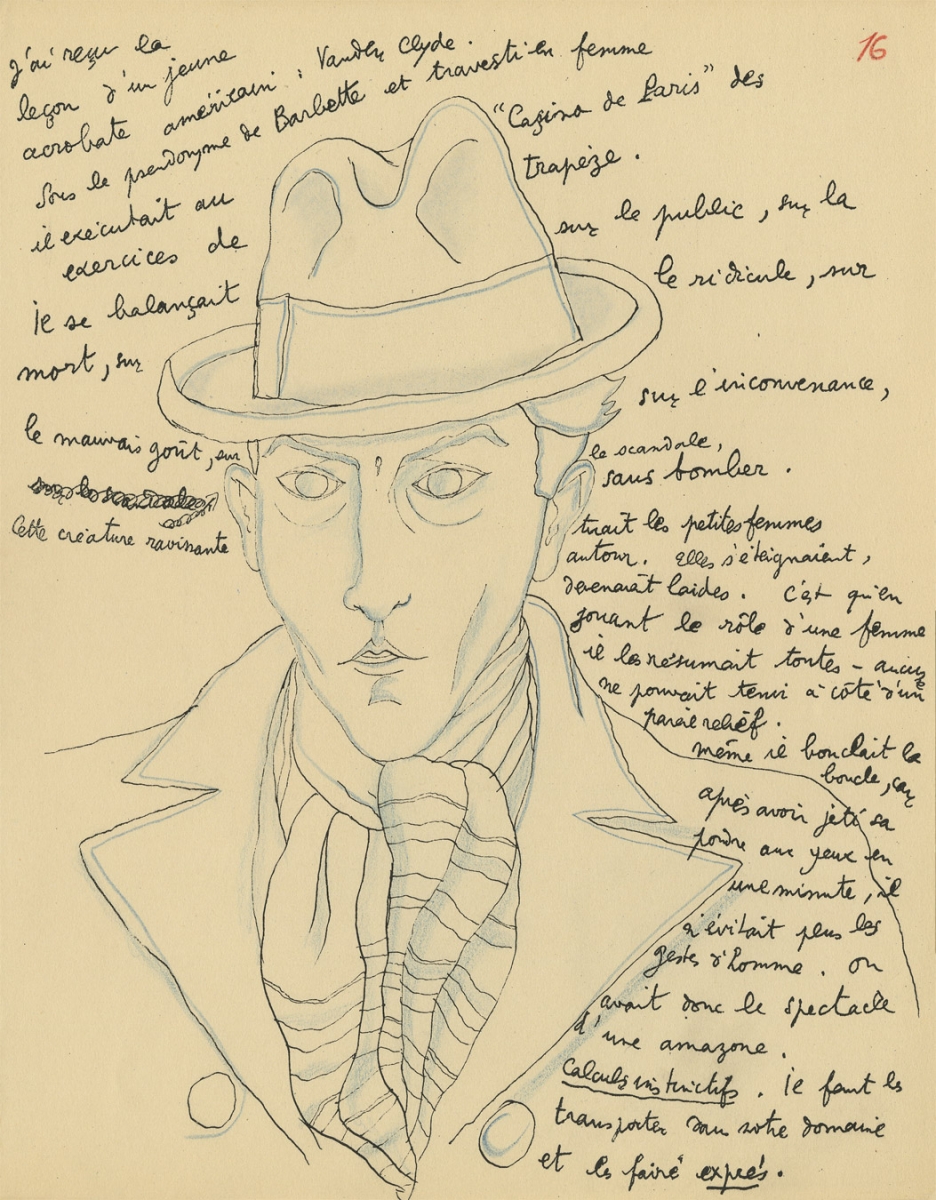 16
J'ai reçu la
leçon d'un jeune
acrobate américain : Vander Clyde.
Sous le pseudonyme de Barbette et travesti en femme
il exécutait au "Casino de Paris" des
exercices de trapèze.
Il se balançait sur le public, sur la
mort, sur le ridicule, sur
le mauvais goût, sur l'inconvenance,
sur le scandale,
sans tomber.
Cette créature ravissante tuait les petites femmes
autour. Elles s'éteignaient,
devenaient laides. C'est qu'en
jouant le rôle d'une femme
il les résumait toutes – aucune
ne pouvait tenir à côté d'un
pareil relief.
même il bouclait la
boucle, car
après avoir jeté sa
poudre aux yeux en
une minute, il
n'évitait plus les
gestes d'homme. On
avait donc le spectacle
d'une amazone.
Calculs instinctifs. Il faut les
transporter dans notre domaine
et les faire exprès.